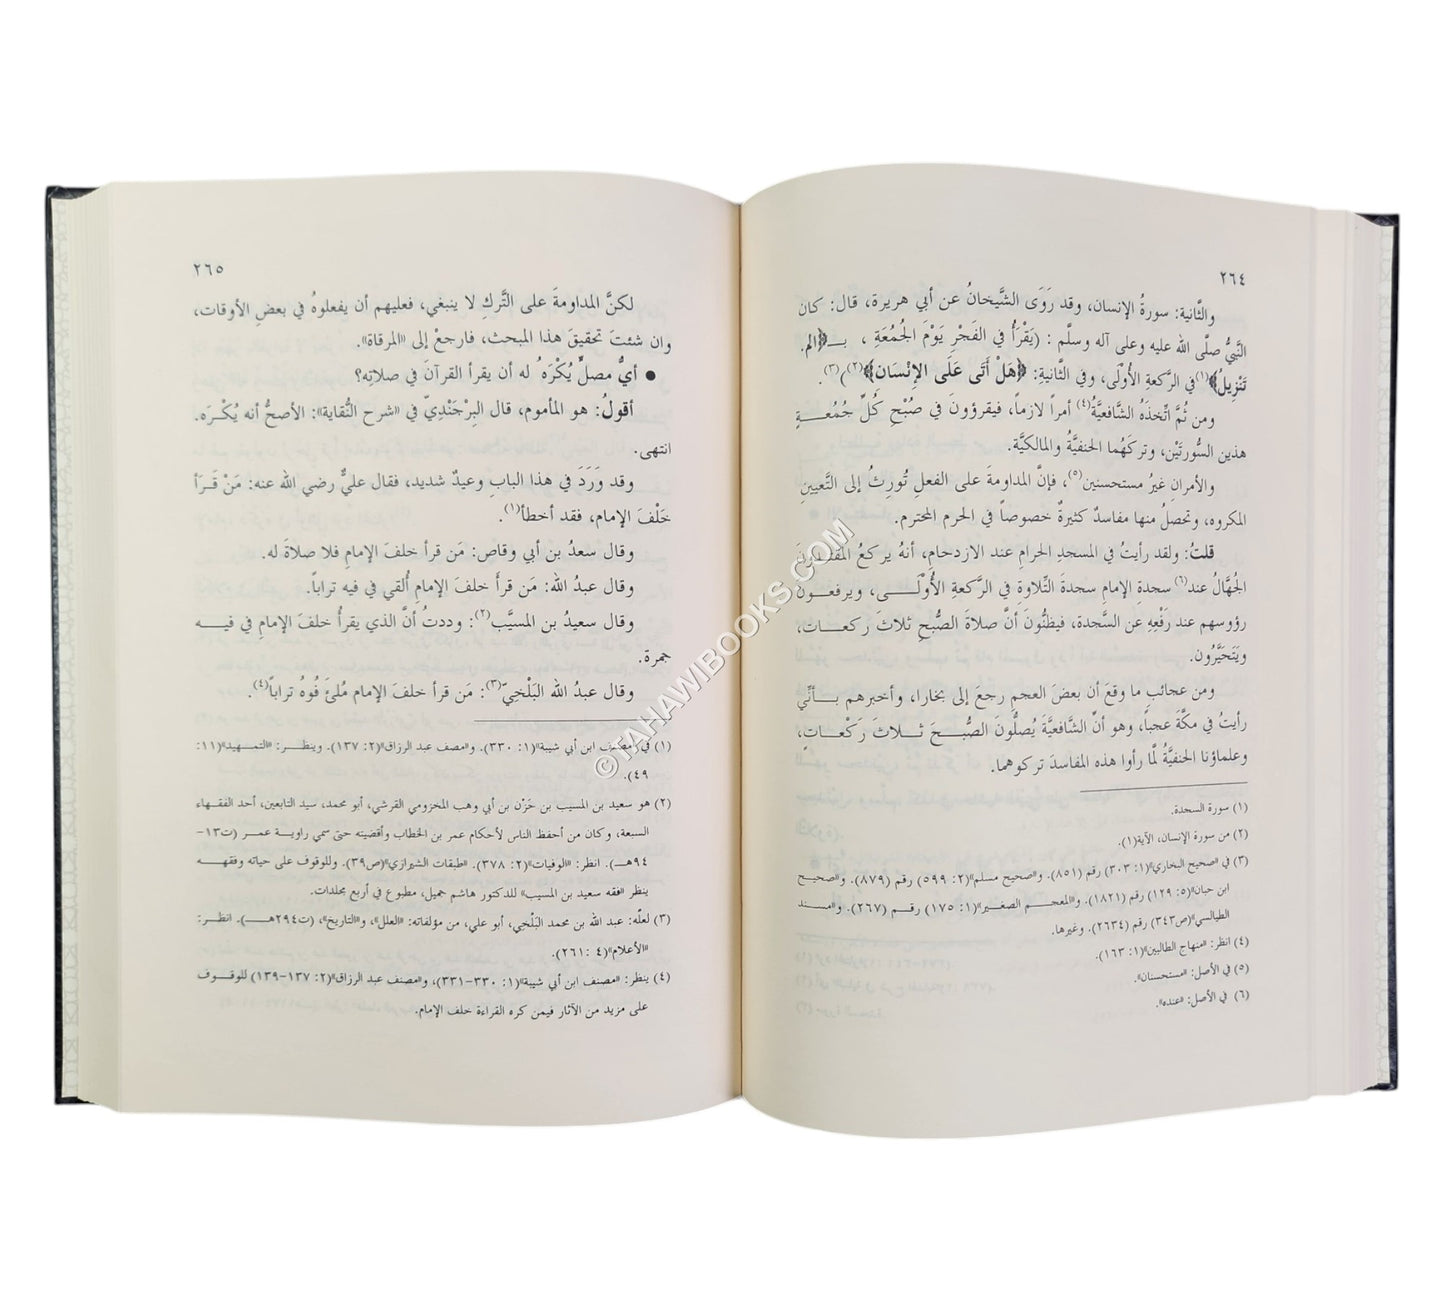 ٢٦٤
والثَّانية: سورةُ الإنسان، وقد رَوَى الشَّيخانُ عن أبي هريرة، قال: كان
النَّبيُّ صلَّى الله عليه وعلى آله وسلَّم : (يَقْرَأُ في الفَجْرِ يَوْمَ الجُمُعَةِ ، بـ﴿الم.
تَنْزِيلُ﴾(١)في الرَّكعةِ الأُوْلَى، وفي الثَّانيةِ: ﴿هَلْ أَتَى عَلَى الإنْسَان﴾(٢))(٣).
ومن ثُمَّ اتَّخذَهُ الشَّافعيَّةُ(٤) أمراً لازماً، فيقرؤونَ في صُبْحِ كُلِّ جُمُعَةٍ
هذين السُّورتَيْن، وتركَهُما الحنفيَّةُ والمالكيَّة.
والأمرانِ غيرُ مستحسنين(٥)، فإنَّ المداومةَ على الفعلِ تُورِثُ إلى التَّعيينِ
المكروه، وتحصلُ منها مفاسدٌ كثيرةٌ خصوصاً في الحرم المحترم.
قلتُ: ولقد رأيتُ في المسجدِ الحرامِ عند الازدحامِ، أنهُ يركعُ المقتدونَ
الجُهَّالُ عند(٦) سجدةِ الإمامِ سجدةَ التِّلاوةِ في الرَّكعةِ الأُوْلَى، ويرفعون
رؤوسهم عند رَفْعِهِ عن السَّجدة، فيظنُّونَ أنَّ صلاةَ الصُّبحِ ثلاث ركعات،
ويَتَحَيَّرُون.
ومن عجائبِ ما وقعَ أن بعضَ العجمِ رجعَ إلى بخارا، وأخبرهم بأنِّي
رأيتُ في مكَّةَ عجباً، وهو أنَّ الشَّافعيَّةَ يُصلُّونَ الصُّبحَ ثلاثَ رَكْعاتٍ،
وعلماؤنا الحنفيَّةُ لمَّا رأوا هذه المفاسدَ تركوهما.
(١) سورة السجدة.
(٢) من سورة الإنسان، الآية(١).
(٣) في «صحيح البخاري»(١: ٣٠٣) رقم (٨٥١). و«صحيح مسلم»(٢: ٥٩٩) رقم (٨٧٩). و«صحيح
ابن حبان»(٥: ١٢٩) رقم (١٨٢١). و«المعجم الصغير»(١: ١٧٥) رقم (٢٦٧). و«مسند
الطيالسي»(ص٣٤٣) رقم (٢٦٣٤). وغيرها.
(٤) انظر: «منهاج الطالبين»(١: ١٦٣).
(٥) في الأصل: «مستحسنان».
(٦) في الأصل: «عنده».
٢٦٥
لكنَّ المداومةَ على التَّركِ لا ينبغي، فعليهم أن يفعلوهُ في بعضِ الأوقات،
وان شئتَ تحقيقَ هذا المبحث، فارجعْ إلى «المرقاة».
● أيُّ مصلٍّ يُكْرَهُ له أن يقرأ القرآنَ في صلاتِه؟
أقولُ: هو المأموم، قال البِرْجَنْدِيّ في «شرح النُّقاية»: الأصحُّ أنه يُكْرَه.
انتهى.
وقد وَرَدَ في هذا البابِ وعيدٌ شديد، فقال عليٌّ رضي الله عنه: مَنْ قَرَأ
خَلْفَ الإمام، فقد أخطأ(١).
وقال سعدُ بن أبي وقاص: مَن قرأ خلفَ الإمامِ فلا صلاةَ له.
وقال عبدُ الله: مَن قرأَ خلفَ الإمامِ أُلقي في فيه تراباً.
وقال سعيدُ بن المسيَّب(٢): وددتُ أنَّ الذي يقرأُ خلفَ الإمامِ في فيه
جمرة.
وقال عبدُ الله البَلْخِيّ(٣): مَن قرأ خلفَ الإمام مُلئَ فُوهُ تراباً(٤).
(١) في «مصنف ابن أبي شيبة»(١: ٣٣٠). و«مصنف عبد الرزاق»(٢: ١٣٧). وينظر: «التمهيد»(١١:
٤٩).
(٢) هو سعيد بن المسيب بن حَزْن بن أبي وهب المخزومي القرشي، أبو محمد، سيد التابعين، أحد الفقهاء
السبعة، وكان من أحفظ الناس لأحكام عمر بن الخطاب وأقضيته حتى سمي راوية عمر (ت١٣-
٩٤هـ). انظر: «الوفيات»(٢: ٣٧٨). «طبقات الشيرازي»(ص٣٩). وللوقوف على حياته وفقهه
ينظر «فقه سعيد بن المسيب» للدكتور هاشم جميل، مطبوع في أربع مجلدات.
(٣) لعلّه: عبد الله بن محمد البَلْخِي، أبو علي، من مؤلفاته: «العلل»، و«التاريخ»، (ت٢٩٤هـ). انظر:
«الأعلام»(٤ :٢٦١).
(٤) ينظر: «مصنف ابن أبي شيبة»(١: ٣٣٠-٣٣١)، و«مصنف عبد الرزاق»(٢: ١٣٧-١٣٩) للوقوف
على مزيد من الآثار فيمن كره القراءة خلف الإمام.
©TAHAWIBOOKS.COM